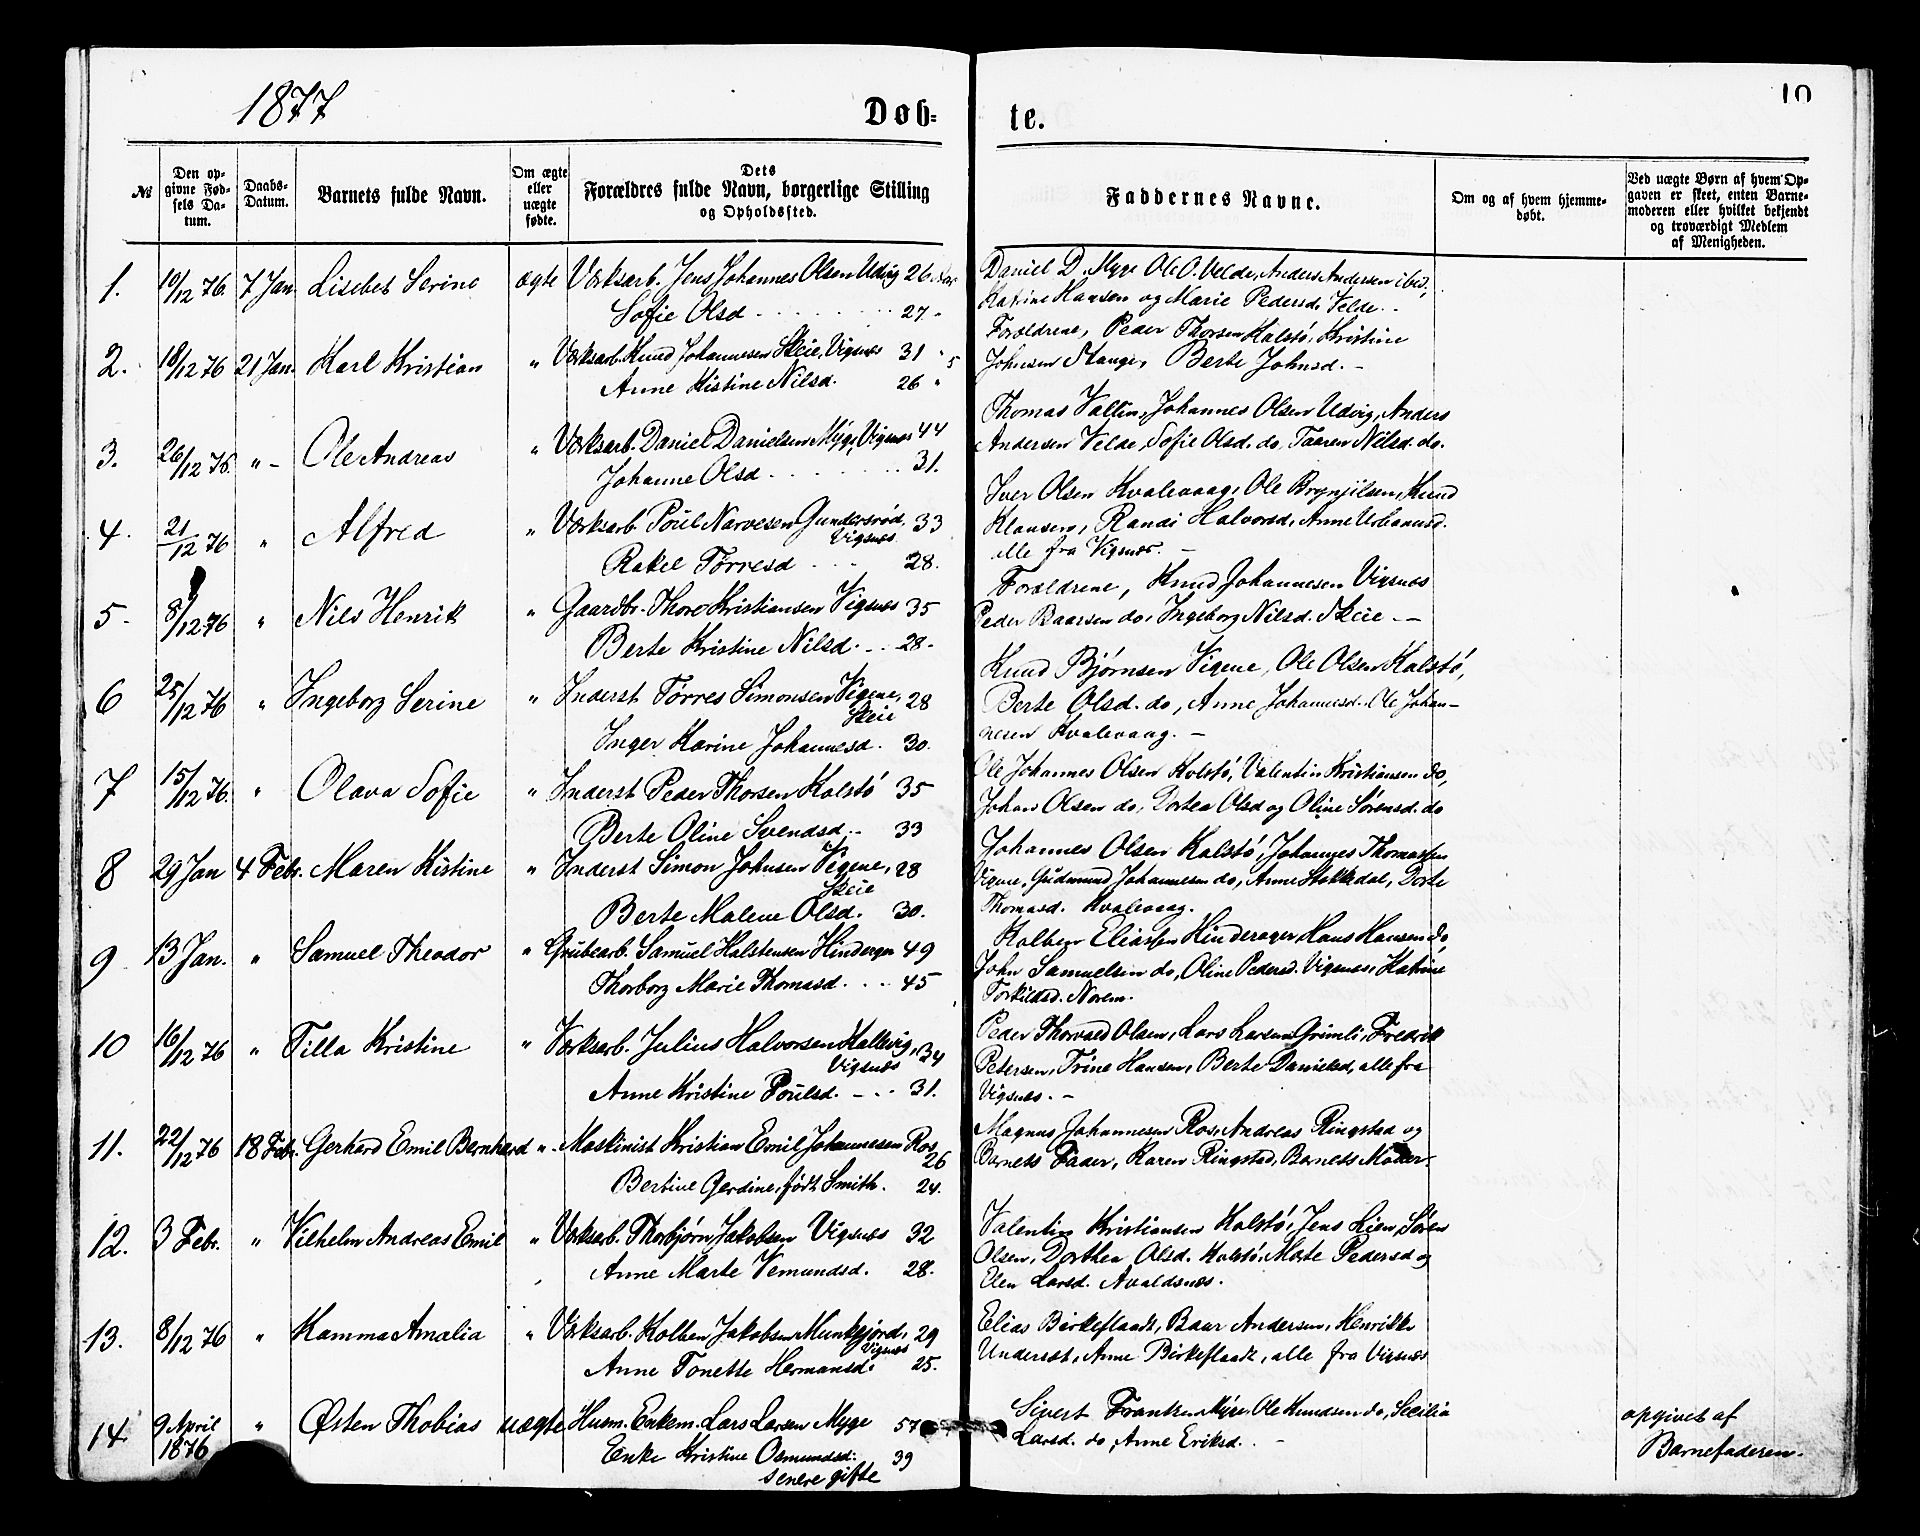 1877
Døb=
te.
10
№
Den op-
givne Fød-
sels Da-
tum.
Daabs-
Datum.
Barnets fulde Navn.
Om ægte
eller
uægte
fødte.
Dets
Forældres fulde Navn, borgerlige Stilling
og Opholdssted.
Faddernes Navne.
Om og af hvem hjemme-
døbt.
Ved uægte Børn af hvem Op-
gaven er skeet, enten Barne-
moderen eller hvilket bekjendt
og troværdigt Medlem
af Menigheden.
1. 19/12 76. 7 Jan. Lisebet Serine ægte Værksarb. Jens Johannes Olsen Udvig 26 Aar
Sofie Olsd 27 "
Daniel D. Myge Ole O. Velde, Anders Andersen ibid,
Katrine Hansen og Marie Pedersd. Velde.
2. 18/12 76 21 Jan. Karl Kristian " Værksarb. Knud Johannesen Skeie, Vigsnæs 31 "
Anne Kistine Nilsd. 26 "
Forældrene, Peder Thorsen Kalstø, Kristine
Johnsen Stange, Berte Johnsd. -
3. 26/12 76. " - Ole Andreas " Værksarb. Daniel Danielsen Myge, Vigsnæs 44
Johanne Olsd 31.
Thomas Valtin, Johannes Olsen Udvig, Anders
Andersen Velde, Sofie Olsd. do. Taaren Nilsd. do.
4. 21/12 76 " Alfred " Værksarb. Poul Narvesen Gundersrød, 33
Vigsnæs
Rakel Tørresd 28.
Iver Olsen Kvalevaag, Ole Brynjilsen, Knud
Klausen, Randi Halvorsd, Anne Urbanusd.
alle fra Vigsnæs. -
5. 8/12 76 " Nils Henrik " Gaardbr. Thore Kristiansen Vigsnæs 35
Berte Kristine Nilsd. 28.
Forældrene, Knud Johannesen Vigsnæs
Peder Baarsen do, Ingeborg Nilsd. Skeie. -
6 25/12 76 " Ingeborg Serine " Inderst Tørres Simonsen Vigene, 28
Skeie
Inger Karine Johannesd. 30.
Knud Bjørnsen Vigene, Ole Olsen Kalstø,
Berte Olsd. do, Anne Johannesd. Ole Johan-
nesen Kvalevaag. -
7 15/12 76. " Olava Sofie " Inderst Peder Thorsen Kalstø 35
Berte Oline Svendsd. 33
Ole Johannes Olsen Kalstø, Valentin Kristiansen do,
Johan Olsen do, Dortea Olsd og Oline Sørensd. do
8 29 Jan 4 Febr. Maren Kistine " Inderst Simon Johnsen Vigene, 28
Skeie
Berte Malene Olsd. 30.
Johannes Olsen Kalstø, Johannes Thomassen
Vigene, Gudmund Johannesen do, Anne Stokkedal, Dorte
Thomasd. Kvalevaag.
9 13 Jan. " Samuel Theodor " Grubearb. Samuel Halstensen Hinderager 49
Thorborg Marie Thomasd. 45
Kolben Eliassen Hinderager, Hans Hansen do,
John Samuelsen do, Oline Pedersd. Vigsnæs, Katrine
Torkildsd. Norem.
10 16/12 76 " Tilla Kristine " Værksarb. Julius Halvorsen Kallevig, 34
Vigsnæs
Anne Kristine Poulsd. 31.
Peder Thorvald Olsen, Lars Larsen Grimli, Fredrik
Petersen, Trine Hansen, Berte Danielsd, alle fra
Vigsnæs. -
11. 22/12 76 18 Febr. Gerhard Emil Bernhard " Maskinist Kristian Emil Johannesen Ros,
26
Bertine Gerdine, født Smith. 24.
Magnus Johannesen Ros, Andreas Ringstad og
Barnets Fader, Karen Ringstad, Barnets Moder.
12. 3 Febr. " Vilhelm Andreas Emil " Værksarb. Thorbjørn Jakobsen Vigsnæs 32
Anne Marte Vemundsd. 28.
Valentin Kristiansen Kalstø, Jens Lien, Søren
Olsen, Dorthea Olsd. Kalstø, Marte Pedersd og
Elen Larsd. Avaldsnæs.
13. 8/12 76 " Kamma Amalia " Værksarb. Kolben Jakobsen Munkejord, 29
Vigsnæs
Anne Tonette Hermansd. 25.
Elias Birkeflaadt, Baar Andersen, Henrikke
Underset, Anne Birkeflaadt, alle fra Vigsnæs
14. 9 April " Østen Thobias uægte Husm. Enkem. Lars Larsen Myge 57
1876
Enke Kristine Osmundsd. 39
senere gifte
Sivert Frantzen Myge, Ole Knudsen do, Secilia
Larsd. do, Anne Eriksd. -
opgivet af
Barnefaderen.